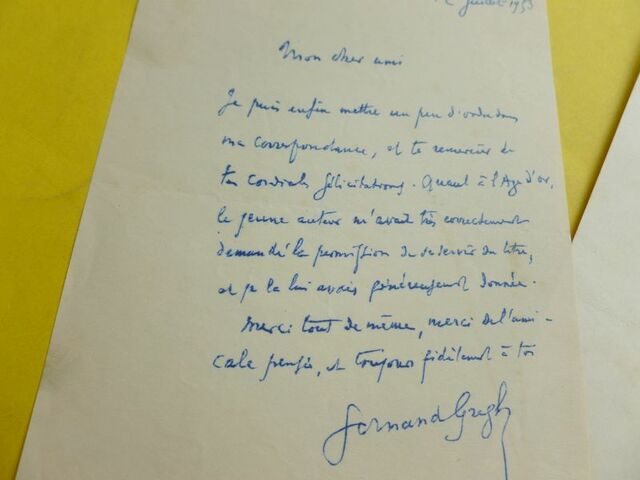 juillet 1953
Mon cher ami
Je puis enfin mettre un peu d'ordre dans
ma correspondance, et te remercier de
tes cordiales félicitations. Quant à l'Age d'or,
le jeune auteur m'avait très correctement
demandé la permission de se servir du titre,
et je la lui avais généreusement donnée.
Merci tout de même, merci de l'ami-
cale pensée, et toujours fidèlement à toi
Fernand Gregh